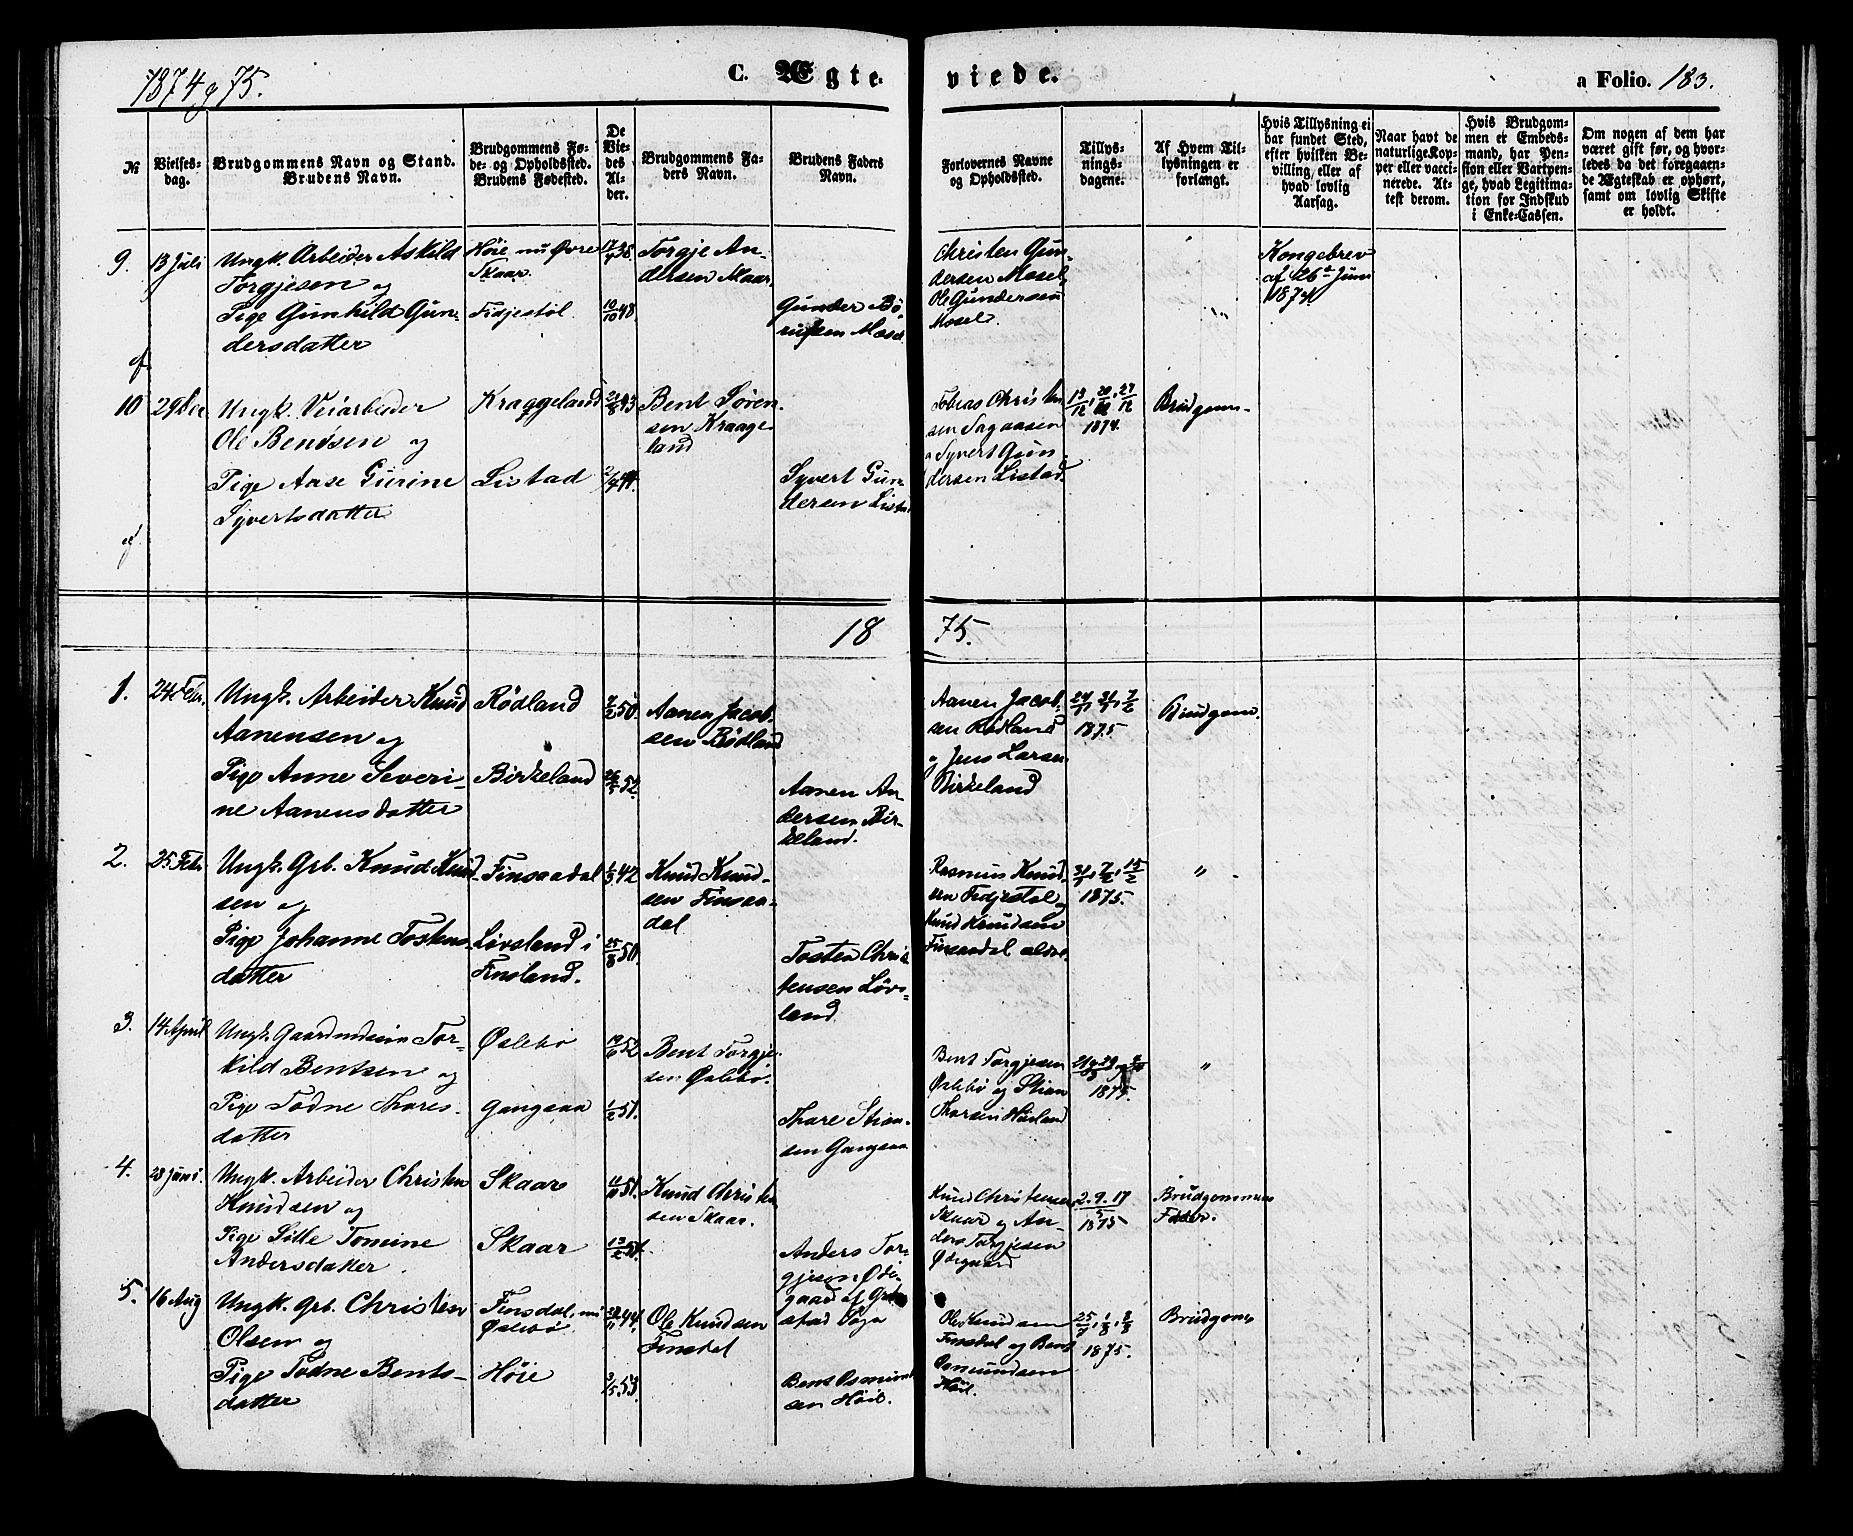 1874 og 75.
C. Ægte viede.
a Folio. 183.
№
Vielses-
dag.
Brudgommens Navn og Stand.
Brudens Navn.
Brudgommens Fø-
de- og Opholdssted.
Brudens Fødested.
De
Vie-
des
Al-
der.
Brudgommens Fa-
ders Navn.
Brudens Faders
Navn.
Forlovernes Navne
og Opholdssted.
Tillys-
nings-
dagene.
Af Hvem Til-
lysningen er
forlangt.
Hvis Tillysning ei
har fundet Sted,
efter hvilken Be-
villing, eller af
hvad lovlig
Aarsag.
Naar havt de
naturlige Kop-
per eller vacci-
nerede. At-
test derom.
Hvis Brudgom-
men er Embeds-
mand, har Pen-
sion eller Vartpen-
ge, hvad Legitima-
tion for Indskud
i Enke-Cassen.
Om nogen af dem har
været gift før, og hvor-
ledes da det foregaaen-
de Ægteskab er ophørt,
samt om lovlig Skifte
er holdt.
9. 13 Juli
Ungk. Arbeider Askild
Torgjesen og
Pige Gunhild Gun-
dersdatter
Høie nu Øvre
Skaar.
Fidjestøl.
10/10 48.
Torgje An-
dersen Skaar.
Gunder Bø-
riksen Mosel
Christen Gun-
dersen Mosel,
Ole Gundersen
Mosel.
Kongebrev
af 26de Juni
1874.
10 29 Dec
Ungk. Veiarbeider
Ole Bendsen og
Pige Aase Gurine
Syvertsdatter
Kraggeland
Listad
Bent Søren-
sen Kraage-
land
Syvert Gun-
dersen Listad
Tobias Christen-
sen Sagaasen
o Syvert Gun-
dersen Listad.
13/12, 20/12, 27/12
1874.
Brudgom-
1875.
1. 24 Febr.
Ungk. Arbeider Knud
Aanensen og
Pige Anne Severi-
ne Aanensdatter
Rødland
Birkeland
7/2 50.
52.
Aanen Jacob-
sen Rødland
Aanen An-
dersen Bir-
keland.
Aanen Jacob-
sen Rødland
og Jens Larsen
Birkeland
24/1, 31/1, 7/2
1875
Brudgom.
2. 25 Febr
Ungk. Grb. Knud Knud-
sen og
Pige Johanne Tostens-
datter
Finsaadal
Løvsland i
Finsland.
1/3 42
25/8 50.
Knud Knud-
sen Finsaa-
dal
Tosten Chris-
tensen Løvs-
land
Rasmus Knud-
sen Fidjestøl og
Knud Knudsen
Finsaadal ældre.
31/1, 7/2, 15/2
1875.
"
3. 14 April
Ungk. Gaardmdssøn Tor-
kild Bentsen og
Pige Todne Thores-
datter
Øslebø
Gangsaa
52
1/2 51.
Bent Torgje-
sen Øslebø.
Thore Stian-
sen Gangsaa
Bent Torgjesen
Øslebø og Stian
Thorsen Høiland
1875.
"
4. 23 Juni.
Ungk. Arbeider Christen
Knudsen og
Pige Sille Tomine
Andersdatter
Skaar
Skaar
51.
Knud Christen-
sen Skaar.
Anders Tor-
gjesen Øde-
gaard
Knud Christensen
Skaar og An-
ders Torgjesen
Ødegaard
2. 9. 17
5
1875
Brudgommens
Fader.
5. 16 Aug
Ungk. Grb. Christen
Olsen og
Pige Todne Bents-
datter
Finsdal, nu
Øslebø
Høie
44.
3/5 53.
Ole Knudsen
Finsdal
Bent Osmund-
sen Høie.
Ole Knudsen
Finsdal og Bent
Osmundsen
Høie.
25/7, 1/8, 8/8
1875.
Brudgom